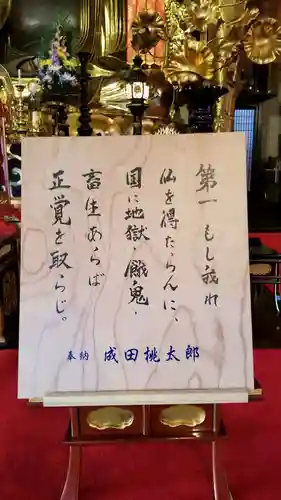 第一 もし我れ
仏を得たらんに、
国に地獄・餓鬼・
畜生あらば
正覚を取らじ。
奉納 成田桃太郎